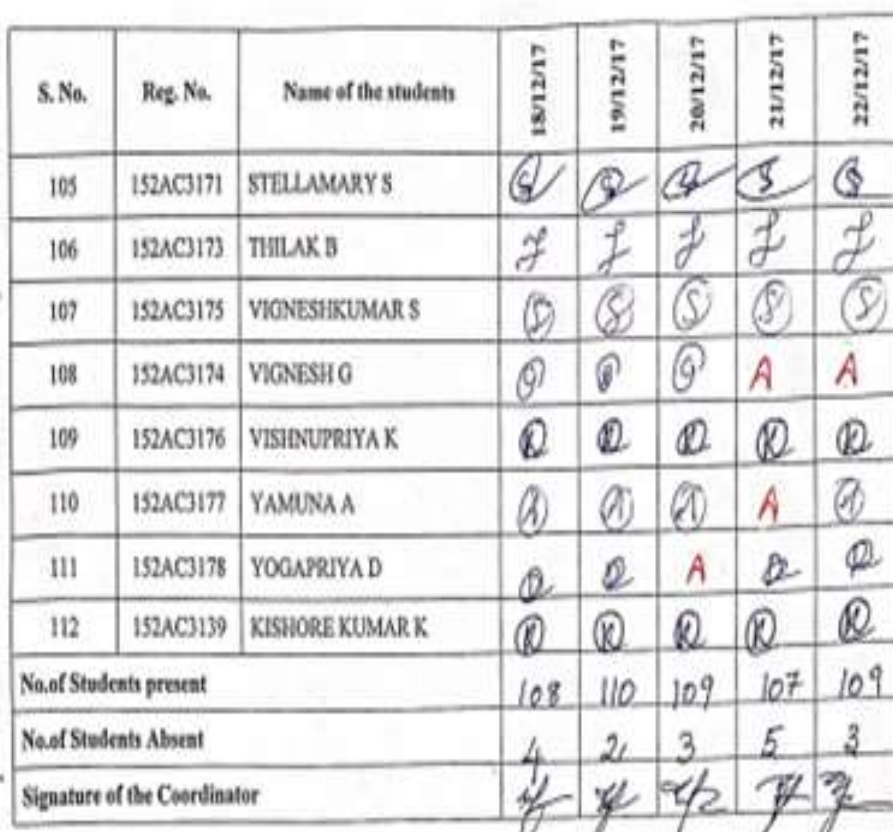 S. No. Reg. No. Name of the students 18/12/17 19/12/17 20/12/17 21/12/17 22/12/17
105 152AC3171 STELLAMARY S
106 152AC3173 THILAK B
107 152AC3175 VIGNESHKUMAR S S S S S S
108 152AC3174 VIGNESH G G G A A
109 152AC3176 VISHNUPRIYA K K K K K K
110 152AC3177 YAMUNA A A A A A A
111 152AC3178 YOGAPRIYA D A
112 152AC3139 KISHORE KUMAR K K K K K K
No.of Students present 108 110 109 107 109
No.of Students Absent 4 2 3 5 3
Signature of the Coordinator